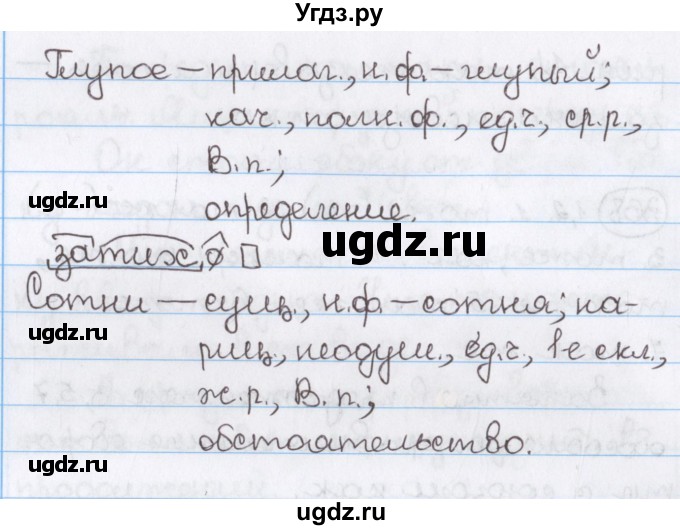 Угдз.ру
Глупое – прилаг., н.ф. – глупый;
кач., полн.ф., ед.ч., ср.р.,
В.п.;
ugdz.ru
определение.
ugdz.ru
затих ø
Сотни – сущ., н.ф. – сотня; на-
ugdz.ru
риц., неодуш., ед.ч., 1-е скл.,
ж.р., В.п.;
обстоятельство.
ugdz.ru
ugdz.ru
ugdz.ru